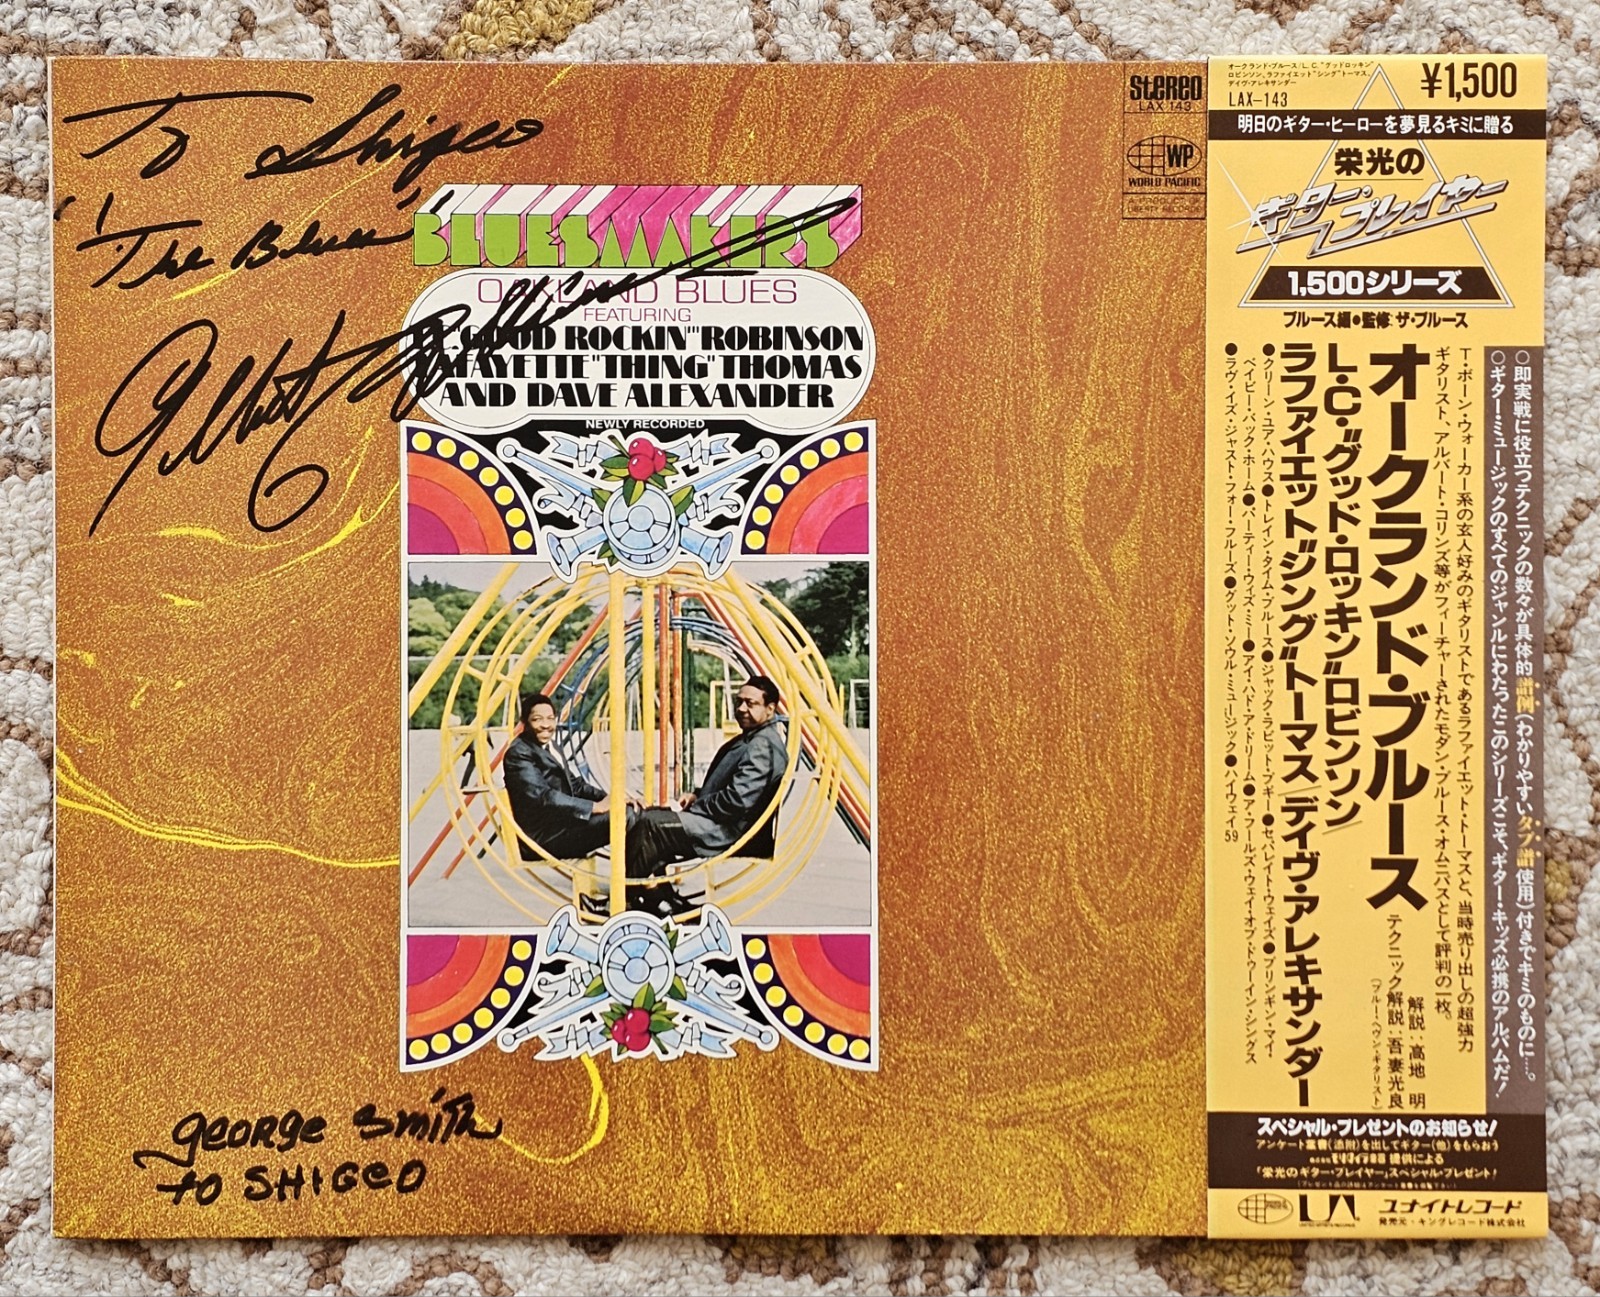 To Shigeo
"The Blues"
BLUESMAKERS
OAKLAND BLUES
FEATURING
"GOOD ROCKIN'" ROBINSON
FAYETTE "THING" THOMAS
AND DAVE ALEXANDER
NEWLY RECORDED
george smith
to SHIGEO
stereo
LAX 143
WP
WORLD PACIFIC
LIBERTY RECORDS
オークランド・ブルース/L.C."グッドロッキン"
ロビンソン、ラファイエット"シング"トーマス、
デイヴ・アレキサンダー
LAX-143
¥1,500
明日のギター・ヒーローを夢見るキミに贈る
栄光の
ギター・プレイヤー
1,500シリーズ
ブルース編●監修:ザ・ブルース
○即実戦に役立つテクニックの数々が具体的譜例(わかりやすいタブ譜使用)付きでキミのものに…。
○ギター・ミュージックのすべてのジャンルにわたったこのシリーズこそ、ギター・キッズ必携のアルバムだ!
T・ボーン・ウォーカー系の玄人好みのギタリストであるラファイエット・トーマスと、当時売り出しの超強力
ギタリスト、アルバート・コリンズ等がフィーチャーされたモダン・ブルース・オムニバスとして評判の一枚。
オークランド・ブルース
解説:高地 明
テクニック解説:吾妻光良
(ブルー・ヘヴン・ギタリスト)
L・C・"グッド・ロッキン"ロビンソン/
ラファイエット"シング"トーマス/デイヴ・アレキサンダー
●クリーン・ユア・ハウス●トレイン・タイム・ブルース●ジャック・ラビット・ブギー●セパレイト・ウェイズ●ブリンギン・マイ・
ベイビー・バック・ホーム●パーティー・ウィズ・ミー●アイ・ハド・ア・ドリーム●ア・フールズ・ウェイ・オブ・ドゥーイン・シングス
●ラヴ・イズ・ジャスト・フォー・フールズ●グット・ソウル・ミュージック●ハイウェイ59
スペシャル・プレゼントのお知らせ!
アンケート葉書(添附)を出してギター(他)をもらおう
株式会社モリダイラ楽器 提供による
「栄光のギター・プレイヤー」スペシャル・プレゼント!
(プレゼント品の詳細はアンケート葉書をご覧下さい)
UA
UNITED ARTISTS RECORDS
ユナイトレコード
発売元・キングレコード株式会社